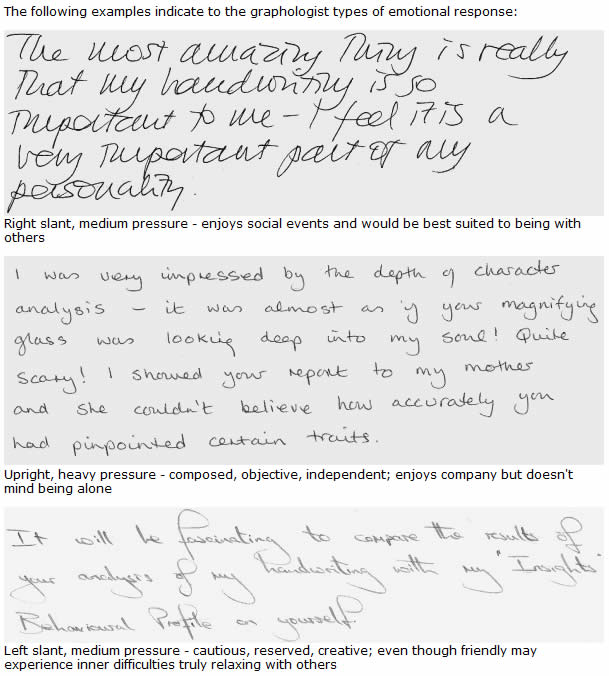 The following examples indicate to the graphologist types of emotional response:
The most amazing Thing is really
That my handwriting is so
Important to me - I feel it is a
very Important part of my
personality.
Right slant, medium pressure - enjoys social events and would be best suited to being with
others
I was very impressed by the depth of character
analysis - it was almost as if your magnifying
glass was looking deep into my soul! Quite
scary! I showed your report to my mother
and she couldn't believe how accurately you
had pinpointed certain traits.
Upright, heavy pressure - composed, objective, independent; enjoys company but doesn't
mind being alone
It will be fascinating to compare the results of
your analysis of my handwriting with my "Insights"
Behavioural Profile on yourself.
Left slant, medium pressure - cautious, reserved, creative; even though friendly may
experience inner difficulties truly relaxing with others